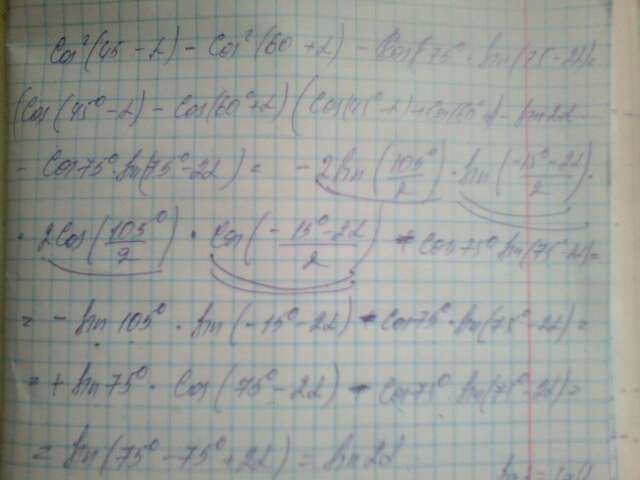 Cos²(45 - α) - Cos²(60 + α) - Cos 75° · sin(75 - 2α) =
(Cos(45° - α) - Cos(60° + α)) (Cos(45° - α) + Cos(60° + α)) - sin 2α
- Cos 75° · sin(75° - 2α) = - 2 sin(105°/2) · sin((-15° - 2α)/2) ·
· 2 Cos(105°/2) · Cos(-(15° - 2α)/2) - Cos 75° · sin(75° - 2α) =
= - sin 105° · sin(-15° - 2α) - Cos 75° · sin(75° - 2α) =
= + sin 75° · Cos(75° - 2α) - Cos 75° · sin(75° - 2α) =
= sin(75° - 75° + 2α) = sin 2α